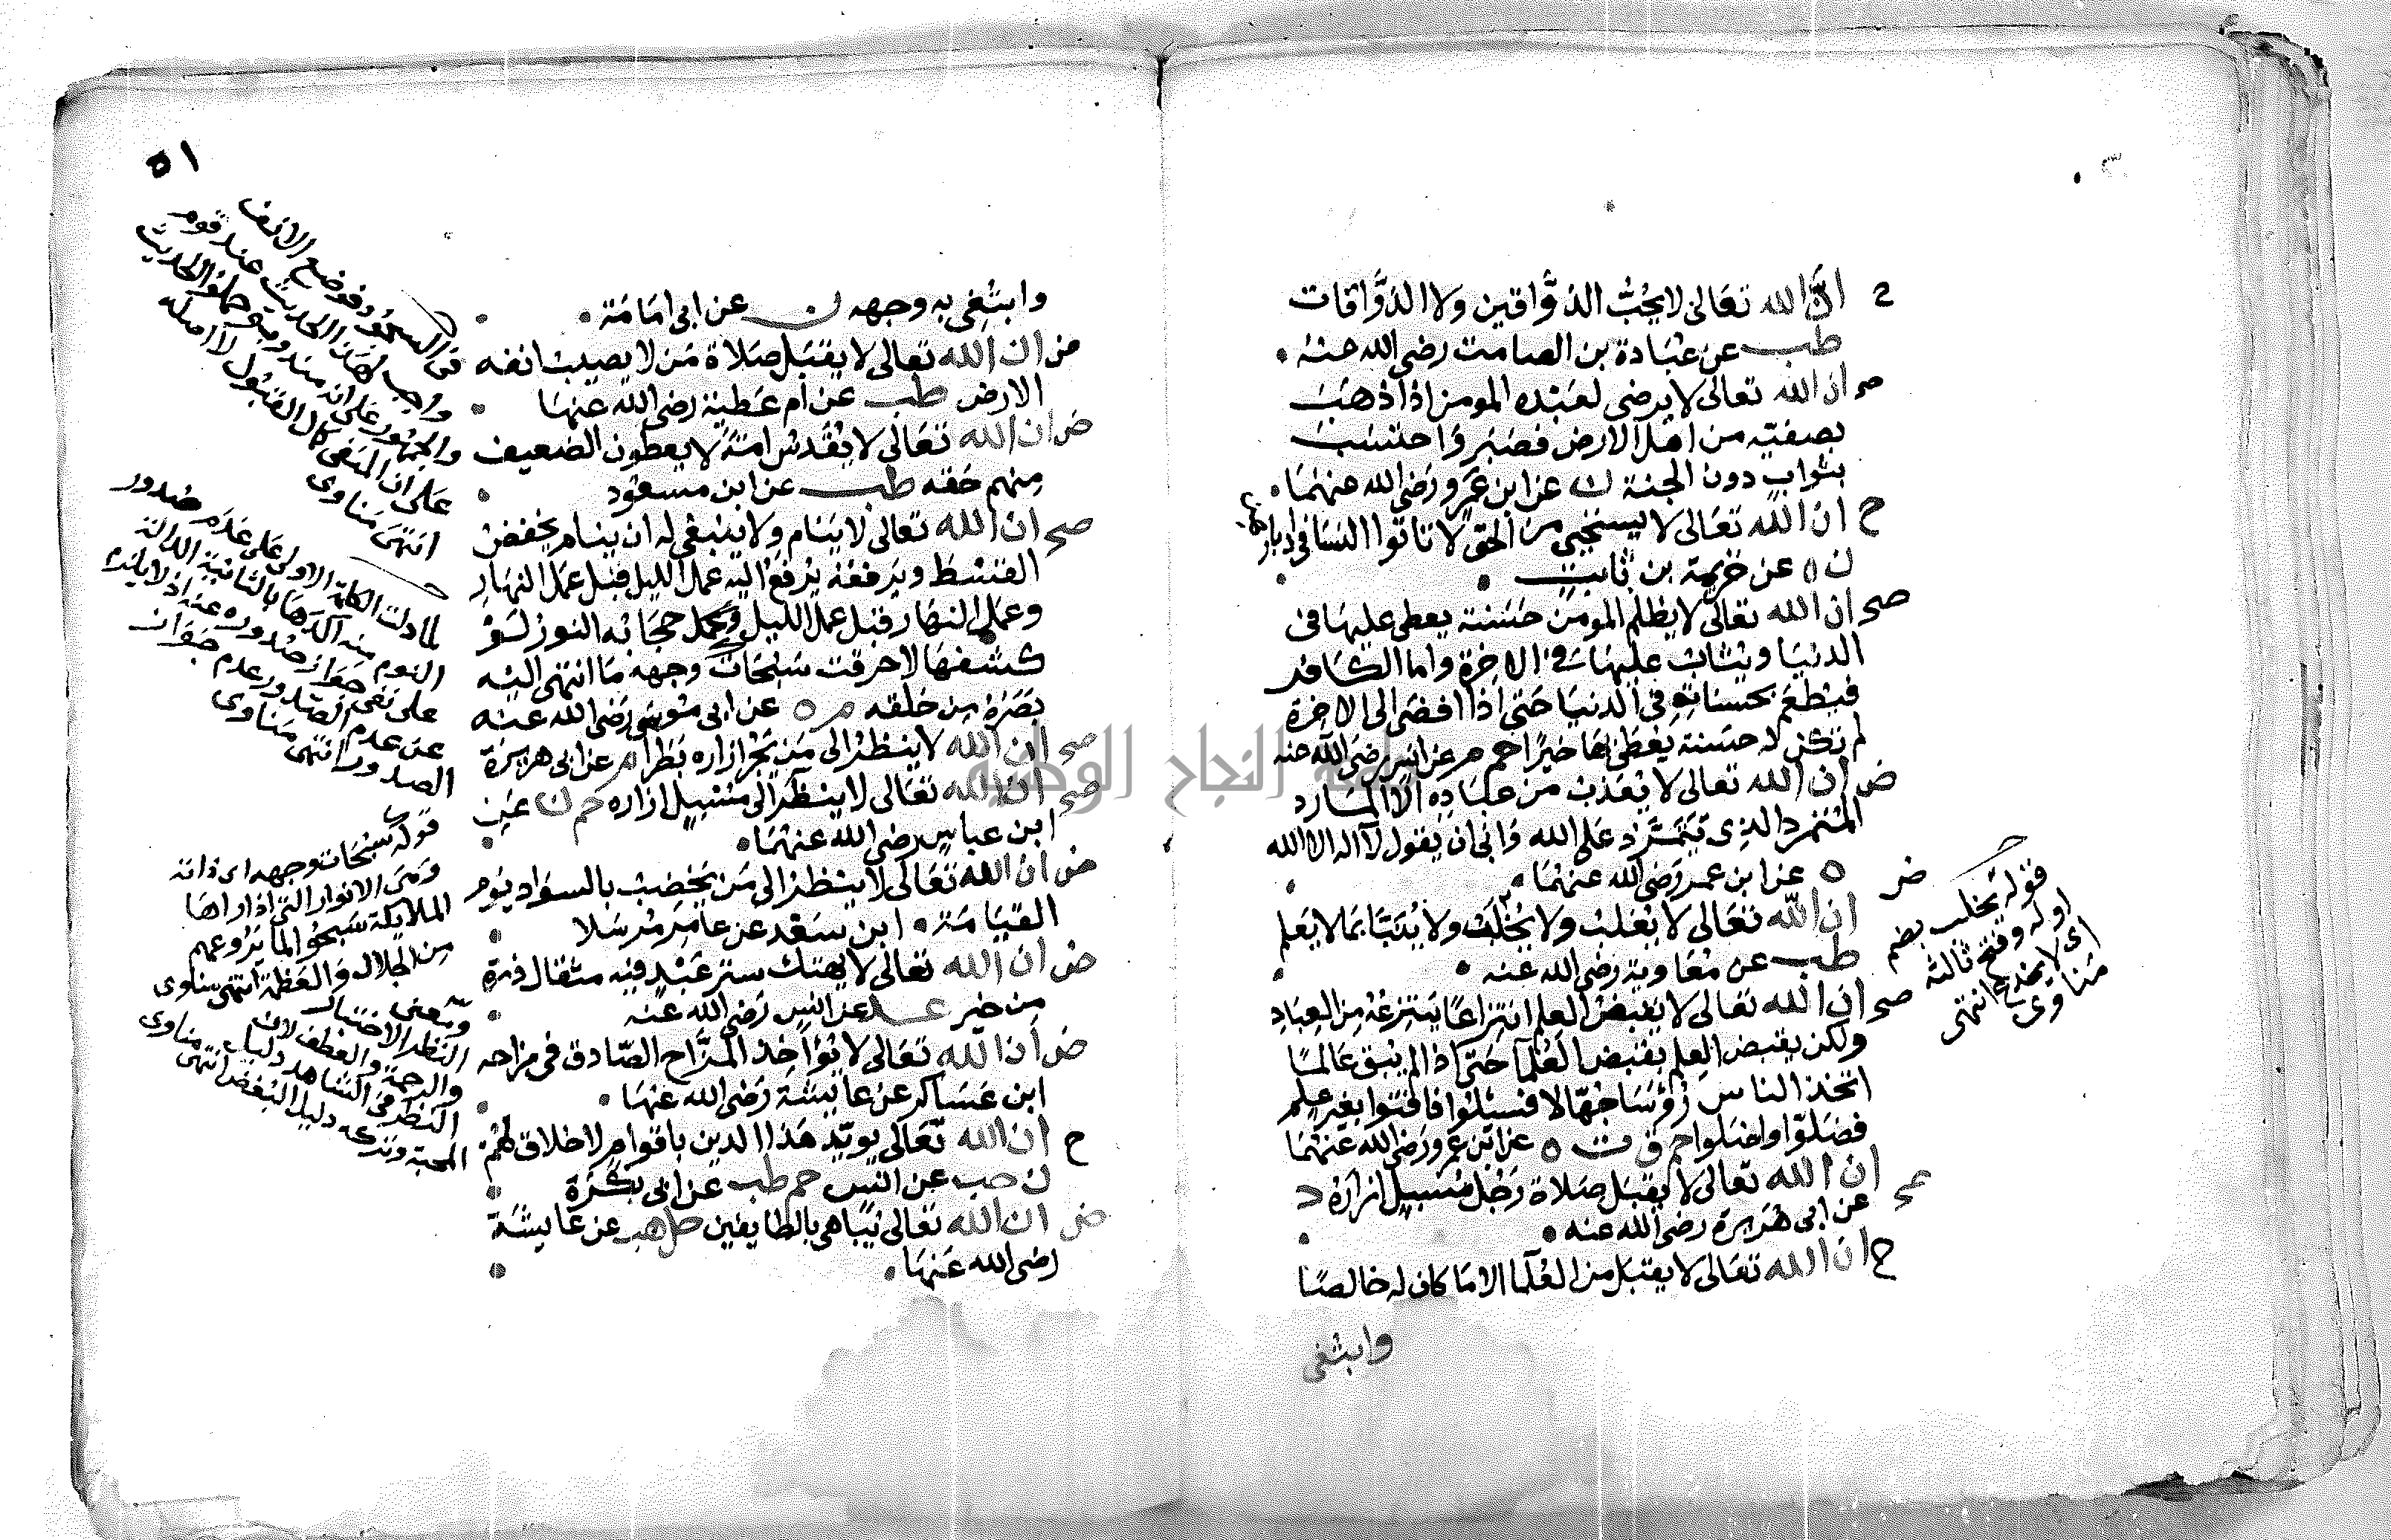 ح ان الله تعالى لا يحب الذواقين ولا الذواقات
طب عن عبادة بن الصامت رضى الله عنه
صح ان الله تعالى لا يرضى لعبده المومن اذا ذهب
بصفيه من اهل الارض فصبر واحتسب
بثواب دون الجنة ن عن ابن عمرو رضى الله عنهما
ح ان الله تعالى لا يستحيي من الحق لا تاتوا النسا فى ادبارهن
ن ه عن خزيمة بن ثابت
صح ان الله تعالى لا يظلم المومن حسنة يعطى عليها فى
الدنيا ويثاب عليها فى الاخرة واما الكافر
فيطعم بحسناته فى الدنيا حتى اذا افضى الى الاخرة
لم تكن له حسنة يعطى بها خيرا حم م عن انس رضى الله عنه
ض ان الله تعالى لا يعذب من عباده الا المارد
المتمرد الذى يتمرد على الله وابى ان يقول لا اله الا الله
ه عن ابن عمر رضى الله عنهما
ض ان الله تعالى لا يغلب ولا يخلب ولا ينبا بما لا يعلم
طب عن معاوية رضى الله عنه
صح ان الله تعالى لا يقبض العلم انتزاعا ينتزعه من العباد
ولكن يقبض العلم بقبض العلما حتى اذا لم يبق عالما
اتخذ الناس رؤسا جهالا فسئلوا فافتوا بغير علم
فضلوا واضلوا حم ق ت ه عن ابن عمرو رضى الله عنهما
صح ان الله تعالى لا يقبل صلاة رجل مسبل ازاره د
عن ابى هريرة رضى الله عنه
ح ان الله تعالى لا يقبل من العلما الا ما كان له خالصا
وابتغى
قوله يخلب بضم
اوله وفتح ثالثه
اى لا يخدع انتهى
مناوى
٥١
وابتغى به وجهه ن عن ابى امامة
ض ان الله تعالى لا يقبل صلاة من لا يصيب انفه
الارض طب عن ام عطية رضى الله عنها
ض ان الله تعالى لا يقدس امة لا يعطون الضعيف
منهم حقه طب عن ابن مسعود
صح ان الله تعالى لا ينام ولا ينبغى له ان ينام يخفض
القسط ويرفعه يرفع اليه عمل الليل قبل عمل النهار
وعمل النهار قبل عمل الليل حجابه النور لو
كشفها لاحرقت سبحات وجهه ما انتهى اليه
بصره من خلقه م ه عن ابى موسى رضى الله عنه
صح ان الله لا ينظر الى من يجر ازاره بطرا م عن ابى هريرة
صح ان الله تعالى لا ينظر الى مسبل ازاره حم ن عن
ابن عباس رضى الله عنهما
ض ان الله تعالى لا ينظر الى من يخضب بالسواد يوم
القيامة ابن سعد عن عامر مرسلا
ض ان الله تعالى لا يهتك ستر عبد فيه مثقال ذرة
من خير عد عن انس رضى الله عنه
ض ان الله تعالى لا يؤاخذ المزاح الصادق فى مزاحه
ابن عساكر عن عايشة رضى الله عنها
ح ان الله تعالى يويد هذا الدين باقوام لا خلاق لهم
ن حب عن انس حم طب عن ابى بكرة
ض ان الله تعالى يباهى بالطايفين حل هب عن عايشة
رضى الله عنها
فى السجود فوضع الانف
واجب لهذا الحديث عند قوم
والجمهور على انه مندوب وحملوا الحديث
على ان المنفى كمال القبول لا اصله
انتهى مناوى
لما دلت الكلمة الاولى على عدم صدور
النوم منه اكدها بالثانية الدالة
على نفى جواز صدوره عنه اذ لا يلزم
من عدم الصدور عدم جواز
الصدور انتهى مناوى
قوله سبحات وجهه اى ذاته
وهى الانوار التى اذا راها
الملايكة سبحوا لما يروعهم
من الجلال والعظمة انتهى مناوى
ومعنى
النظر الاختيار
والرحمة والعطف لان
النظر فى الشاهد دليل
المحبة وتركه دليل البغض انتهى مناوى
جامعة النجاح الوطنية